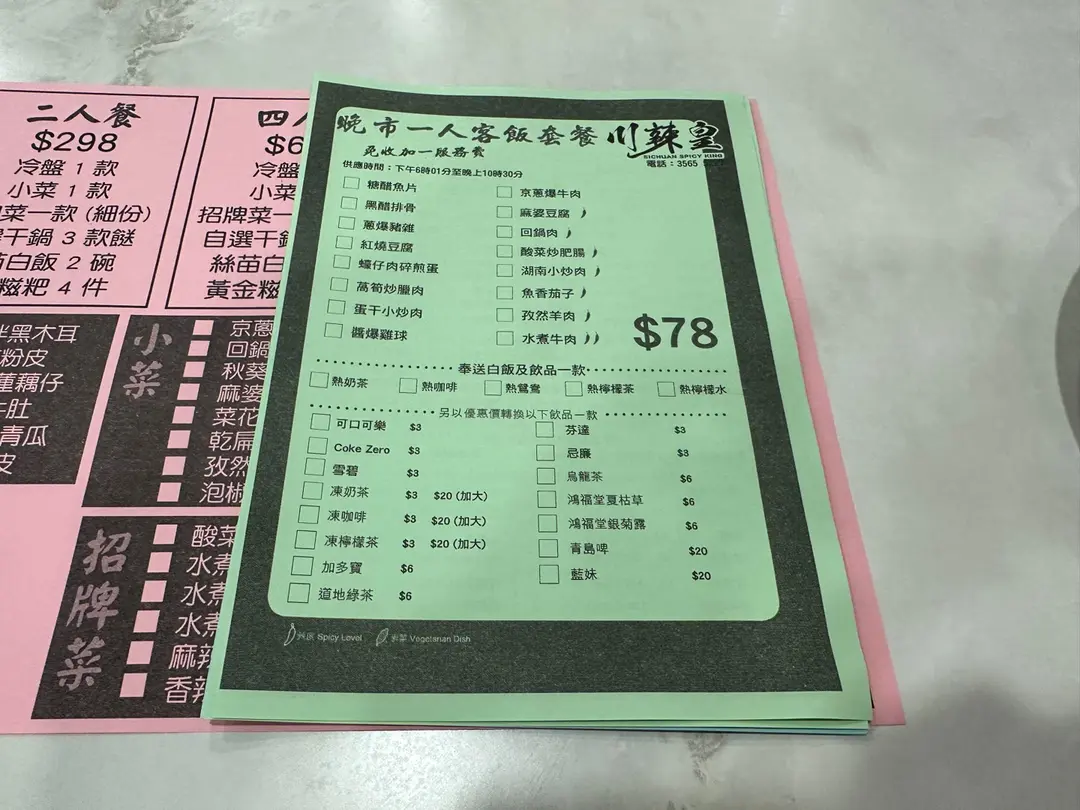 二人餐
$298
冷盤 1 款
小菜 1 款
菜一款 (細份)
干鍋 3 款餸
白飯 2 碗
糍粑 4 件
四
$6
冷盤
小菜
招牌菜一
自選干鍋
絲苗白
黃金糍
拌黑木耳
粉皮
蓮藕仔
牛肚
青瓜
皮
小菜
京蔥
回鍋
秋葵
麻婆
菜花
乾扁
孜然
泡椒
招牌菜
酸菜
水煮
水煮
水煮
麻辣
香辣
晚市一人客飯套餐
川辣皇
SICHUAN SPICY KING
免收加一服務費
電話:3565
供應時間:下午6時01分至晚上10時30分
糖醋魚片
黑醋排骨
蔥爆豬雜
紅燒豆腐
蠔仔肉碎煎蛋
萵筍炒臘肉
蛋干小炒肉
醬爆雞球
京蔥爆牛肉
麻婆豆腐
回鍋肉
酸菜炒肥腸
湖南小炒肉
魚香茄子
孜然羊肉
水煮牛肉
$78
奉送白飯及飲品一款
熱奶茶 熱咖啡 熱鴛鴦 熱檸檬茶 熱檸檬水
另以優惠價轉換以下飲品一款
可口可樂 $3
Coke Zero $3
雪碧 $3
凍奶茶 $3 $20 (加大)
凍咖啡 $3 $20 (加大)
凍檸檬茶 $3 $20 (加大)
加多寶 $6
道地綠茶 $6
芬達 $3
忌廉 $3
烏龍茶 $6
鴻福堂夏枯草 $6
鴻福堂銀菊露 $6
青島啤 $20
藍妹 $20
Spicy Level
Vegetarian Dish